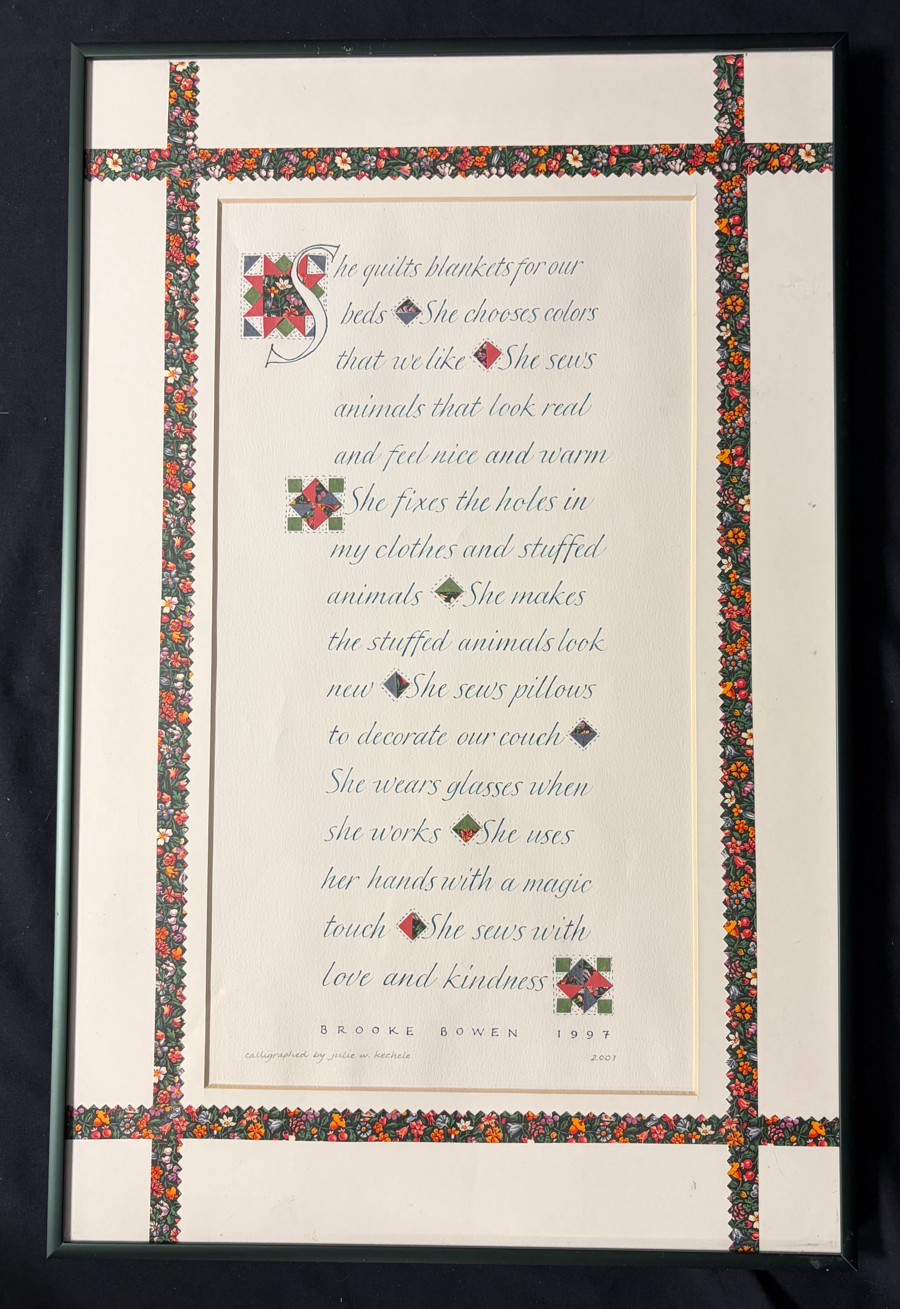 She quilts blankets for our
beds She chooses colors
that we like She sews
animals that look real
and feel nice and warm
She fixes the holes in
my clothes and stuffed
animals She makes
the stuffed animals look
new She sews pillows
to decorate our couch
She wears glasses when
she works She uses
her hands with a magic
touch She sews with
love and kindness
BROOKE BOWEN 1997
calligraphed by julie w. kechele 2001